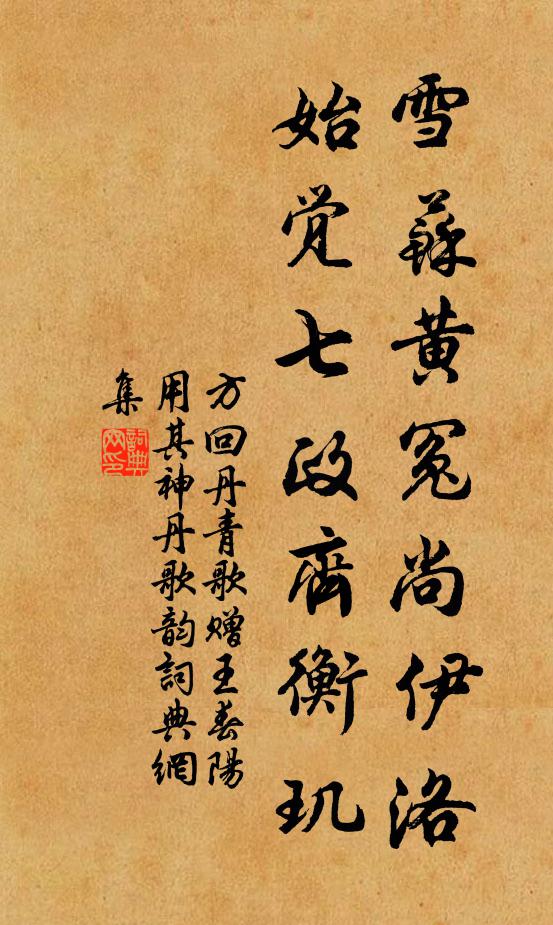 雪蘇黃冤尚伊洛
始覚七政齊衡玑
方回丹青歌赠王春陽
用其神丹歌韵詞典網
集
詞典網印